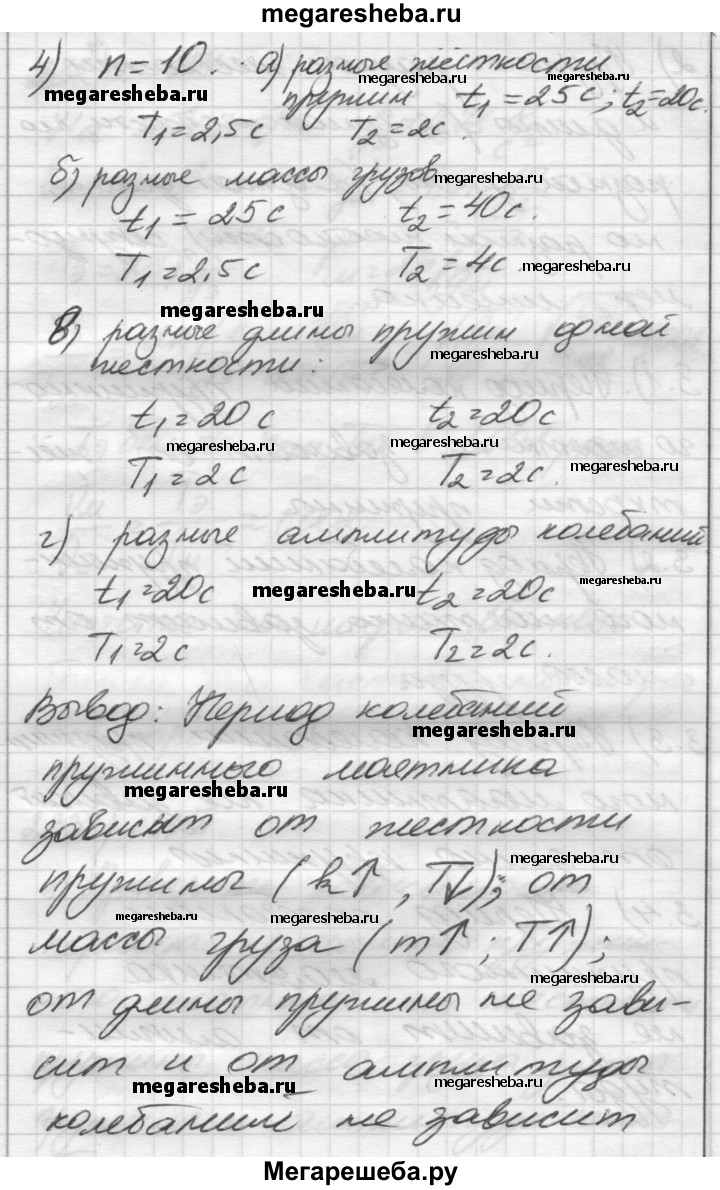 megaresheba.ru
4) n = 10. а) разные жёсткости
megaresheba.ru megaresheba.ru
megaresheba.ru пружин t₁ = 25с; t₂=20с.
T₁ = 2,5с T₂ = 2с.
б) разные массы грузов
megaresheba.ru
t₁ = 25с t₂ = 40с.
T₁ = 2,5с T₂ = 4с
megaresheba.ru
megaresheba.ru
в) разные длины пружин одной
megaresheba.ru
жесткости:
t₁ = 20с t₂ = 20с
megaresheba.ru megaresheba.ru
T₁ = 2с T₂ = 2с.
megaresheba.ru
г) разные амплитуды колебаний
megaresheba.ru megaresheba.ru
t₁ = 20с t₂ = 20с
T₁ = 2с T₂ = 2с.
Вывод: Период колебаний
megaresheba.ru
пружинного маятника
megaresheba.ru
зависит от жесткости
megaresheba.ru
пружины (k↑, T↓); от
megaresheba.ru megaresheba.ru
массы груза (m↑; T↑);
megaresheba.ru
от длины пружины не зави-
сит и от амплитуды
megaresheba.ru megaresheba.ru
колебании не зависит
Мегарешеба.ру